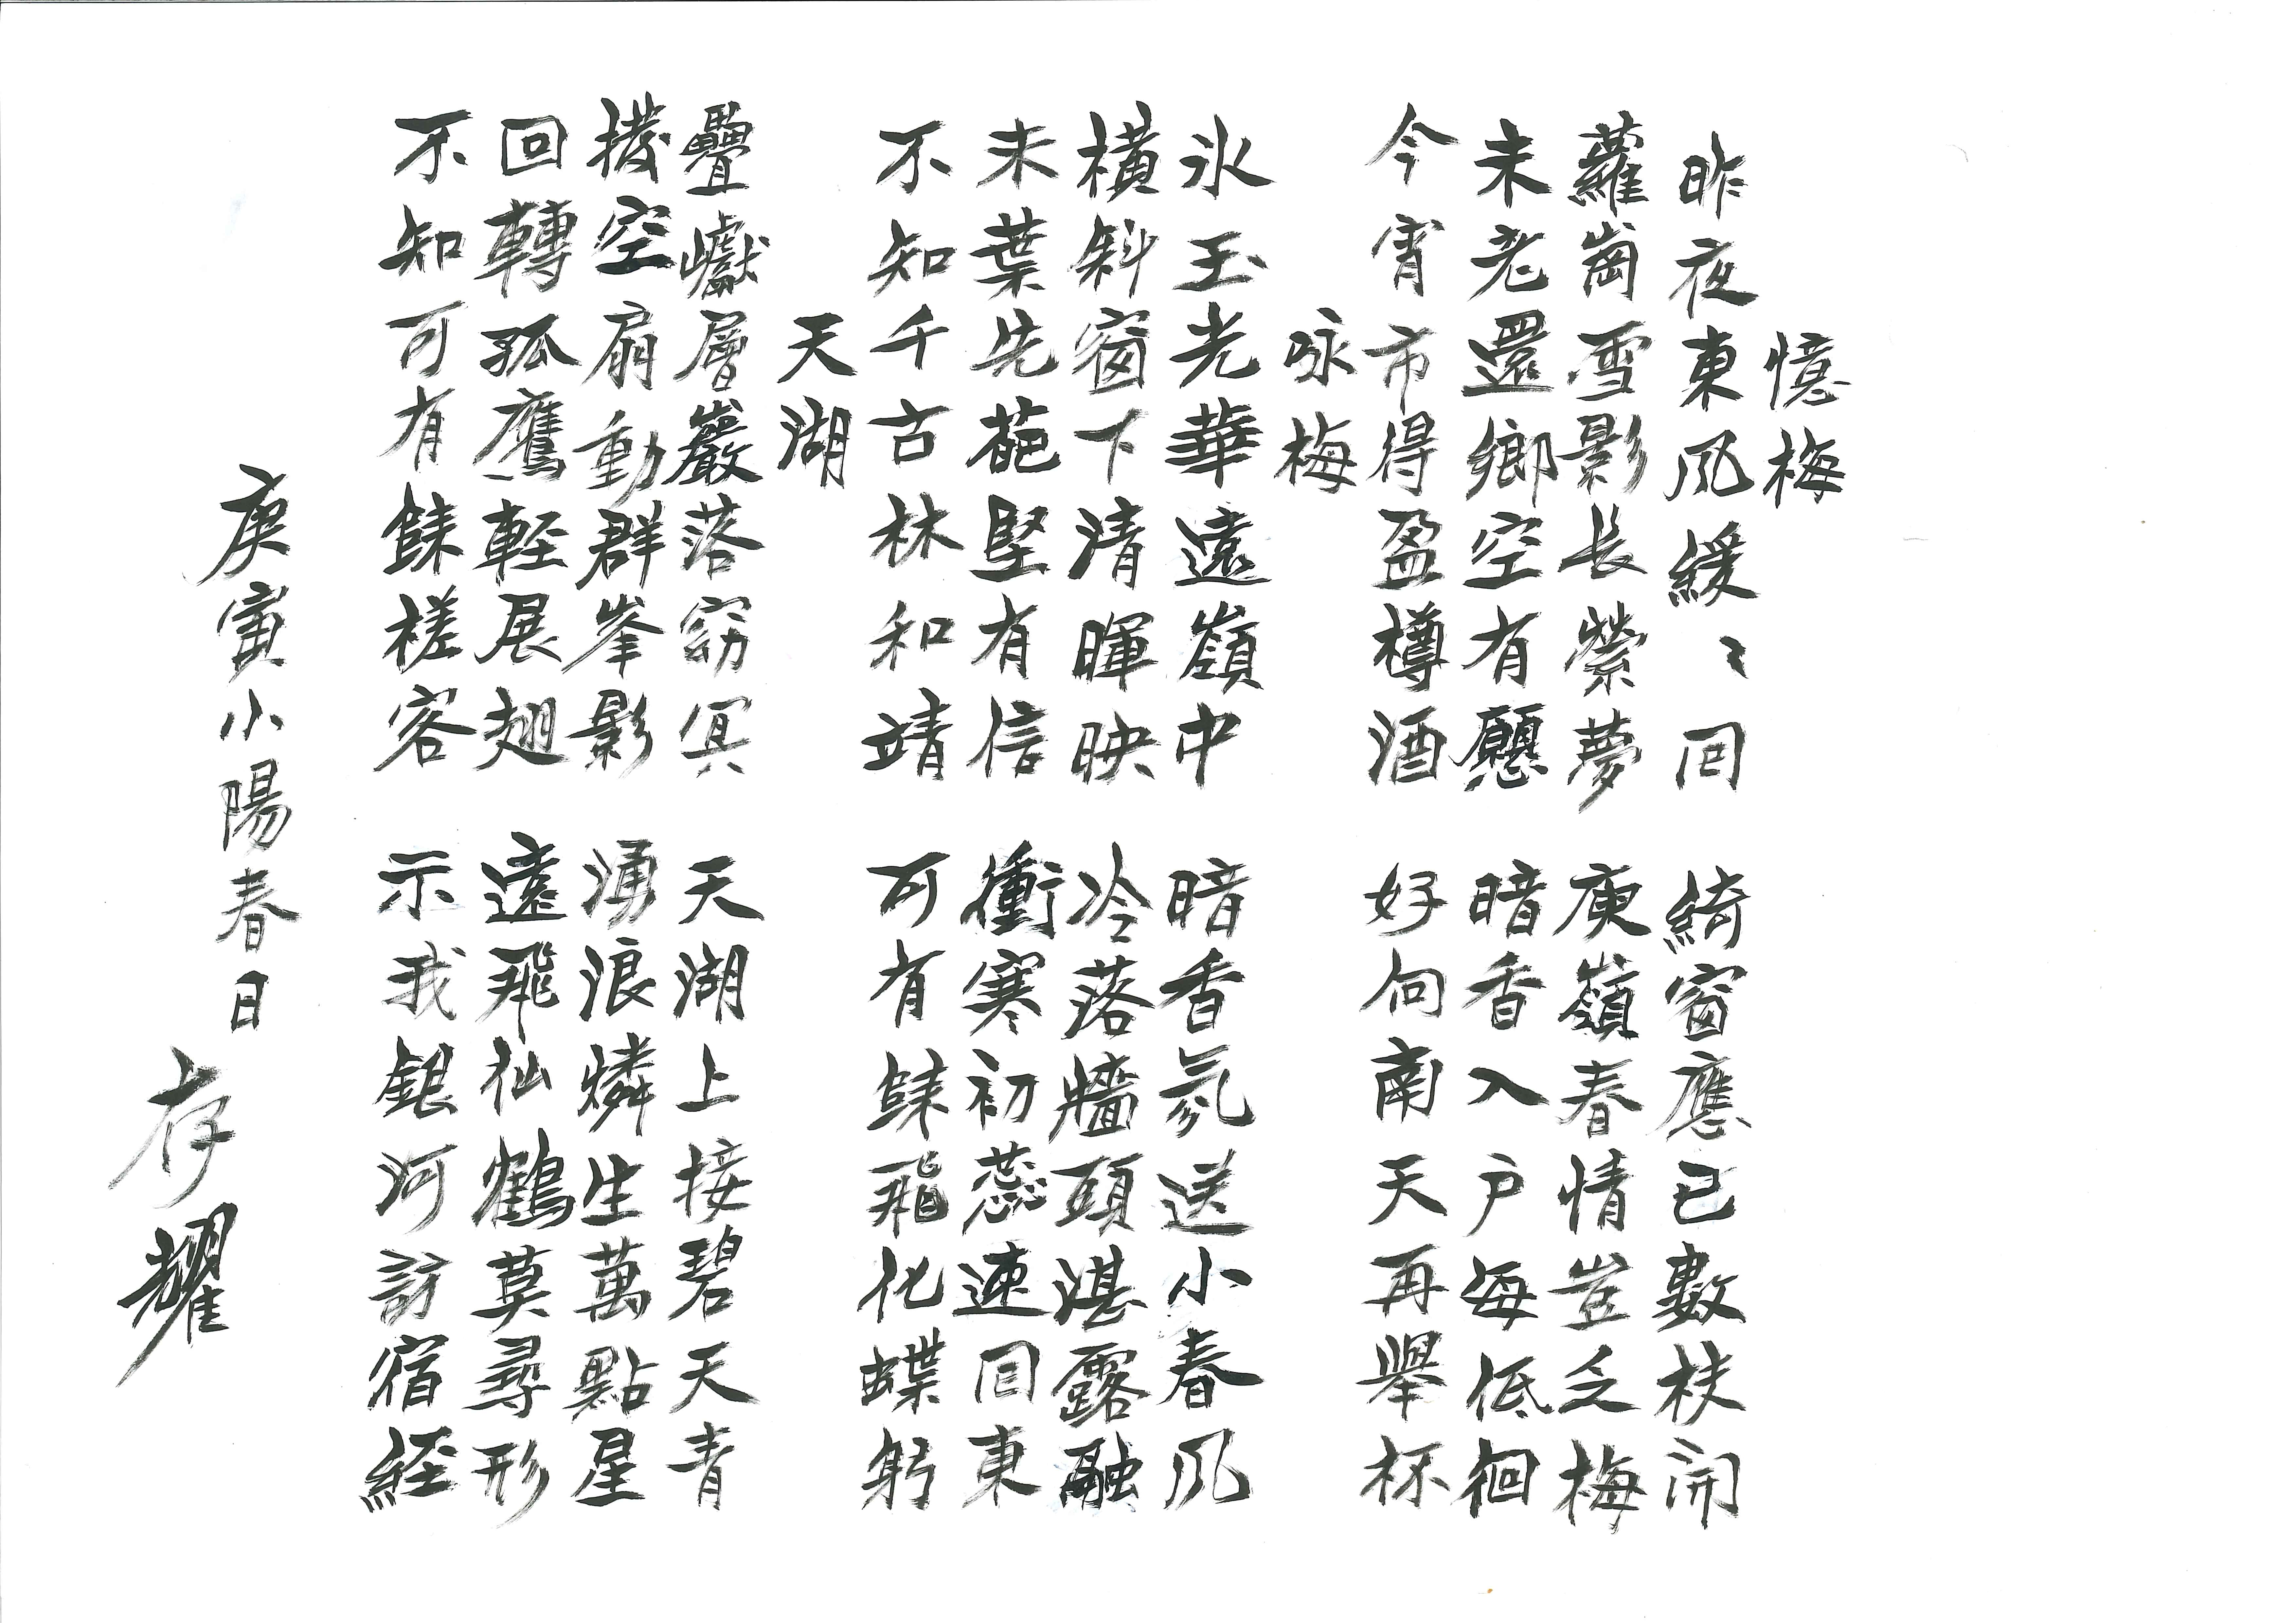 憶梅
昨夜東風緩〻回 綺窗應已數枝開
蘿崗雪影長縈夢 庾嶺春情豈乏梅
未老還鄉空有願 暗香入户每低徊
今宵市得盈樽酒 好向南天再舉杯
咏梅
冰玉光華遠嶺中 暗香氣送小春风
橫斜窗下清暉映 冷落牆頭湛露融
未葉先葩堅有信 衝寒初蕊速回東
不知千古林和靖 可有餘飛化蝶躬
天湖
疊巘層巖落窈冥 天湖上接碧天青
撥空扇動群峯影 湧浪燐生萬點星
回轉孤鷹輕展翅 遠飛仙鶴莫尋形
不知可有餘槎客 示我銀河訪宿經
庚寅小陽春日
存耀